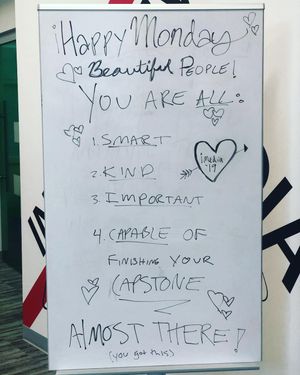 ¡Happy Monday
Beautiful PEOPLE!
YOU ARE ALL:
1. SMART
2. KIND
3. IMPORTANT
4. CAPABLE OF
FINISHING YOUR
CAPSTONE
ALMOST THERE!
(you got this)
imedia
'19